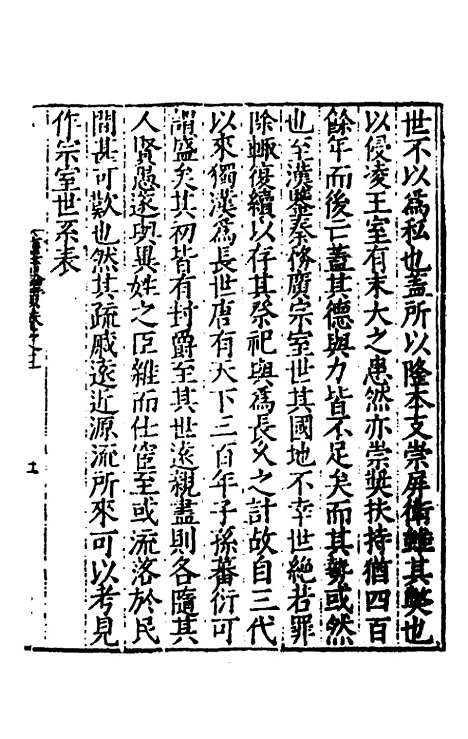 世不以爲私也蓋所以隆本支崇屏衛雖其弊也
以侵凌王室有末大之患然亦崇奬扶持猶四百
餘年而後亡蓋其德與力皆不足矣而其勢或然
也至漢鑒秦偹廣宗室世其國地不幸世絶若罪
除輙復續以存其祭祀與爲長久之計故自三代
以來獨漢爲長世唐有天下三百年子孫蕃衍可
謂盛矣其初皆有封爵至其世遠親盡則各隨其
人賢愚遂與異姓之臣雜而仕宦至或流落於民
間甚可歎也然其疏戚遠近源流所來可以考見
作宗室世系表